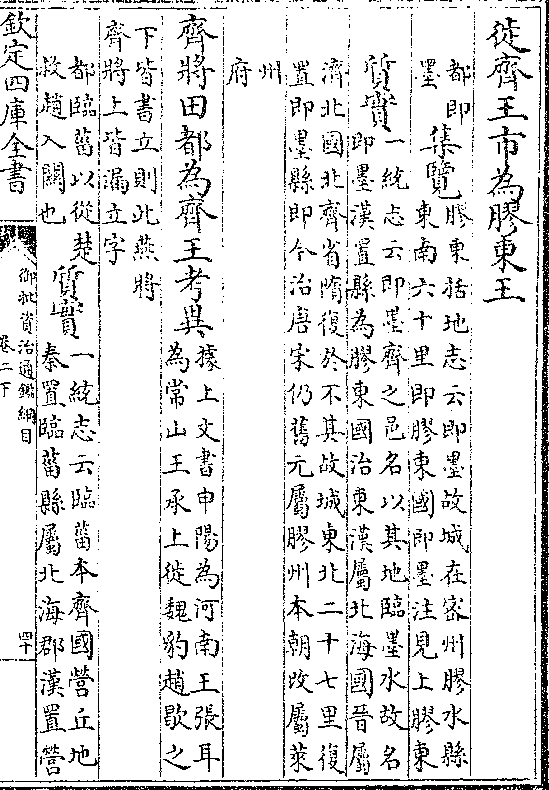 徙齊王市為膠東王
都即
墨
集覽
膠東括地志云即墨故城在密州膠水縣
東南六十里即膠東國即墨注見上膠東
質實
一統志云即墨齊之邑名以其地臨墨水故名
即墨漢置縣為膠東國治東漢屬北海國晉屬
濟北國北齊省隋復於不其故城東北二十七里復
置即墨縣即今治唐宋仍舊元屬膠州本朝改屬萊
州
府
齊將田都為齊王考異
據上文書申陽為河南王張耳
為常山王承上徙魏豹趙歇之
下皆書立則此燕將
齊將上皆漏立字
都臨菑以從楚
救趙入關也
質實
一統志云臨菑本齊國營丘地
秦置臨菑縣屬北海郡漢置營
欽定四庫全書
御批資治通鑑綱目
卷二下
四十